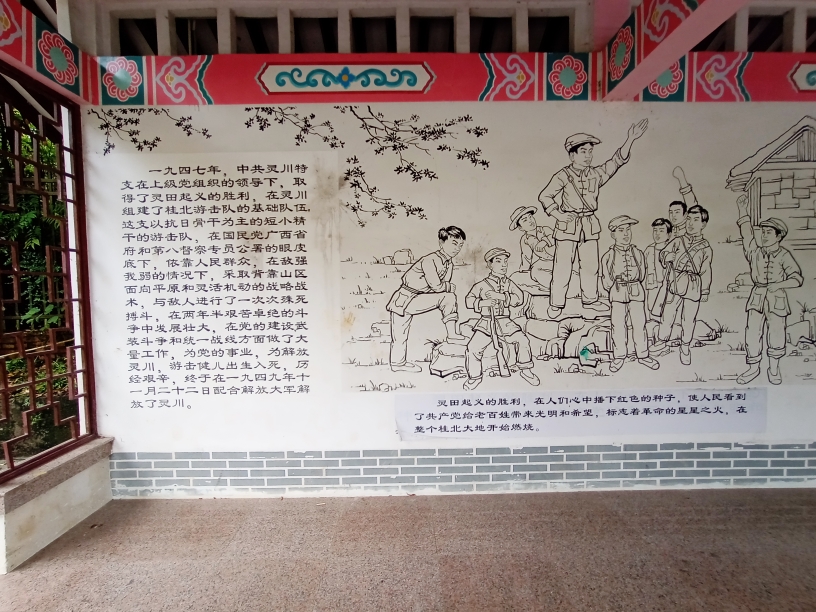 一九四七年，中共灵川特
支在上级党组织的领导下，取
得了灵田起义的胜利，在灵川
组建了桂北游击队的基础队伍
这支以抗日骨干为主的短小精
干的游击队，在国民党广西省
府和第八督察专员公署的眼皮
底下，依靠人民群众，在敌强
我弱的情况下，采取背靠山区
面向平原和灵活机动的战略战
术，与敌人进行了一次次殊死
搏斗，在两年半艰苦卓绝的斗
争中发展壮大，在党的建设武
装斗争和统一战线方面做了大
量工作，为党的事业，为解放
灵川，游击健儿出生入死，历
经艰辛，终于在一九四九年十
一月二十二日配合解放大军解
放了灵川。
灵田起义的胜利，在人们心中播下红色的种子，使人民看到
了共产党给老百姓带来光明和希望，标志着革命的星星之火，在
整个桂北大地开始燃烧。